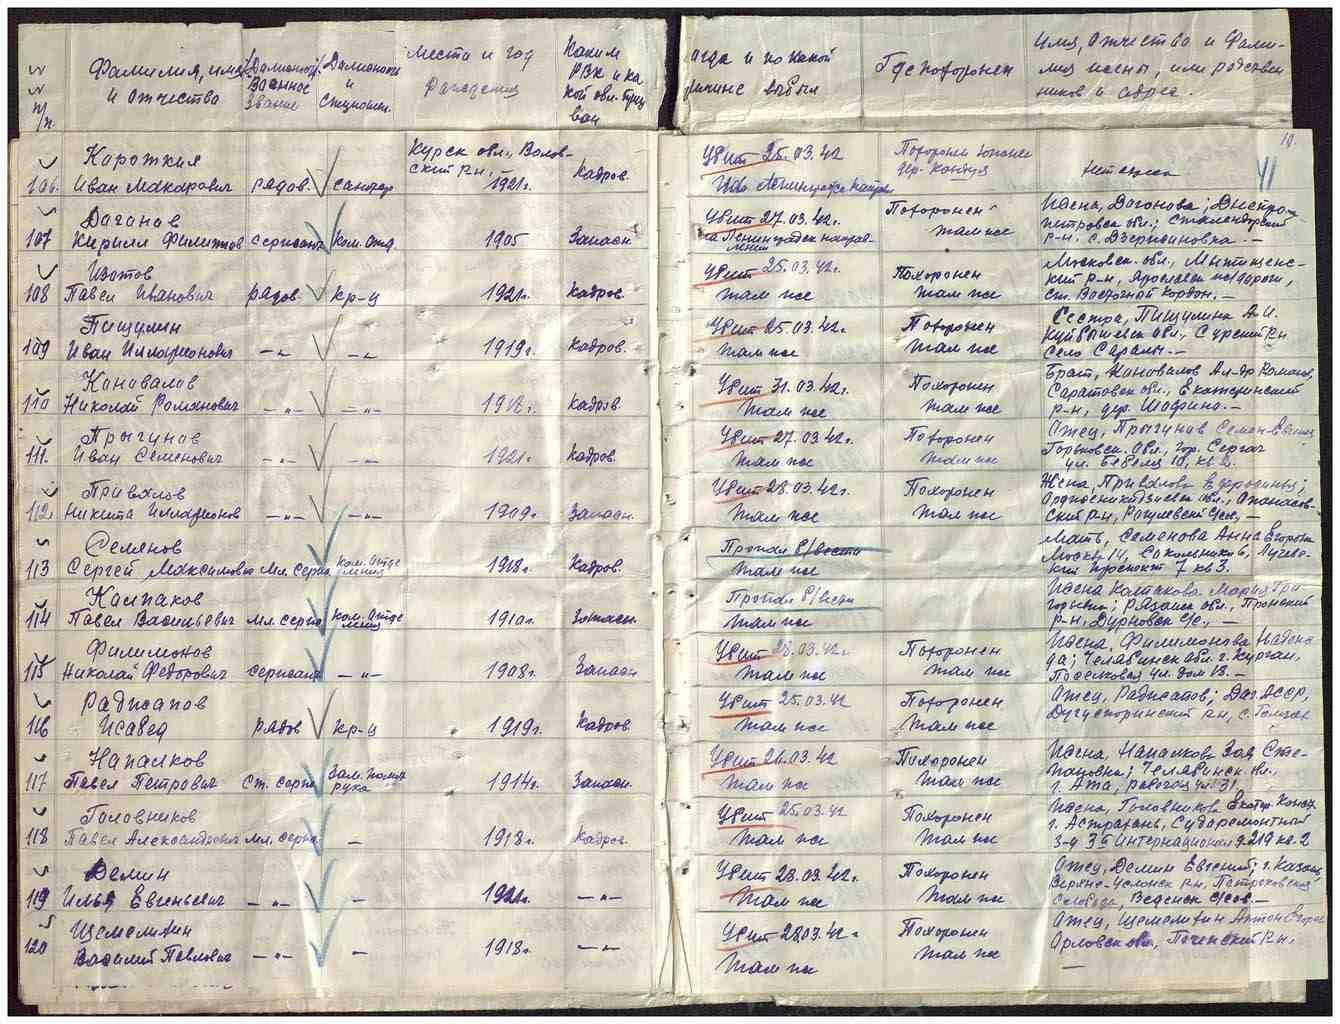 №№ п/п.
Фамилия, имя и отчество
Военное звание
Должность и специальн.
Место и год рождения
Каким РВК и какой обл. призван
Когда и по какой причине выбыл
Где похоронен
Имя, отчество и фамилия жены, или родственников и адрес.
10.
Короткия
106. Иван Макарович рядов. санитар 1921г. Кадров.
Курск обл.,
ский р-н,
Убит 25.03.42
Похоронен
Нет адреса
Даганов
107 Кирилл Филиппов сержант ком. отд. 1905 Запасн
Убит 27.03.42г.
на Ленинградск направлении
Похоронен
там же
Жена, Даганова; Днепропетровск обл.;
р-н. с. Дзержиновка. —
Изотов
108 Павел Иванович рядов. кр-ц 1921г. Кадров.
Убит 25.03.42г.
там же
Похоронен
там же
Московск. обл., Мытищенский р-н, Ярославск. жел дороги,
ст. Восточной Кордон. —
Пищулин
109 Иван Илларионович —"— —"— 1919г. Кадров.
Убит 25.03.42г.
там же
Похоронен
там же
Сестра, Пищулина А.И.
Куйбышевск обл., Сурский р-н
село Сарали. —
Коновалов
110 Николай Романович —"— —"— Кадров.
Убит 31.03.42г.
там же
Похоронен
там же
Брат, Коновалов Ал-др Романов,
Саратовск обл., Екатеринский
р-н, дер. —
Прыгунов
111. Иван Семенович —"— —"— 1921г. Кадров.
Убит 27.03.42г.
там же
Похоронен
там же
Отец, Прыгунов Семен
Горьковск. обл., гор. Сергач
ул. Бебеля 10, кв 2.
Привалов
112 Никита Илларионов —"— —"— 1909г. Запасн.
Убит 28.03.42г.
там же
Похоронен
там же
Жена, Привалова Ефросинья;
Орджоникидзевск обл.,
ский р-н,
Семянов
113 Сергей Максимович Мл. серж ком. отделения 1918г. Кадров.
Пропал б/вести
там же
Мать, Семенова Анна
Москва 14, Сокольники 6,
проспект 7 кв 3.
Колпаков
114 Павел Васильевич мл. серж ком. отделения 1910г. Запасн.
Пропал б/вести
там же
Жена Колпакова Мария Григорьевна; Рязанск обл., Пронский
р-н, Дурновск с/с., —
Филимонов
115 Николай Федорович сержант —"— 1908г. Запасн
Убит 28.03.42г.
там же
Похоронен
там же
Жена, Филимонова Надежда; Челябинск обл. г. Курган,
Поселковая ул. дом 13. —
Раджапов
116 Исабег рядов кр-ц 1919г. Кадров.
Убит 25.03.42
там же
Похоронен
там же
Отец, Раджапов; Даг. АССР,
р-н,
Напалков
117 Павел Петрович ст. серж зам. помрука 1914г. Запасн.
Убит 26.03.42
там же
Похоронен
там же
Жена, Напалкова Зоя Степановна; Челябинск. обл.,
Головников
118 Павел Александрович мл. серж. — 1918г. Кадров.
Убит 25.03.42
там же
Похоронен
там же
Жена, Головникова
г. Астрахань, Судоремонтный
з-д 3й Интернационал д 219 кв. 2
Демин
119 Илья Евгеньевич —"— — 1921г. —"—
Убит 28.03.42г.
там же
Похоронен
там же
Отец, Демин Евгений; г. Казань,
Верхне-Услонск р-н,
слобода, Веденск с/сов. —
Щемелитин
120 Василий Павлович —"— — 1918г. —"—
Убит 28.03.42г
там же
Похоронен
там же
Отец, Щемелитин Антон
Орловск обл., р-н,
—